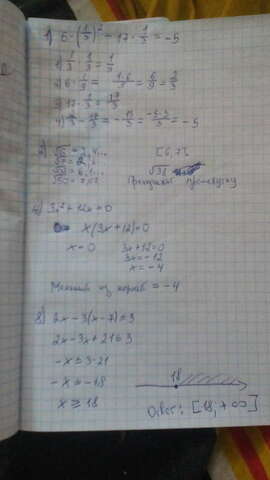 1) 6 · (1/3)² − 17 · 1/3 = −5
1) 1/3 · 1/3 = 1/9
2) 6 · 1/9 = 1·6/9 = 6/9 = 2/3
3) 17 · 1/3 = 17/3
4) 2/3 − 17/3 = −15/3 = −5
[6; 7]
√38
4) 3x² + 12x = 0
x(3x+12)=0
x = 0 3x+12=0
3x = −12
x = −4
Меньший из корней = −4
8) 2x − 3(x−7) ≤ 3
2x − 3x + 21 ≤ 3
−x ≤ 3−21
−x ≤ −18
x ≥ 18
18
Ответ: [18; +∞]